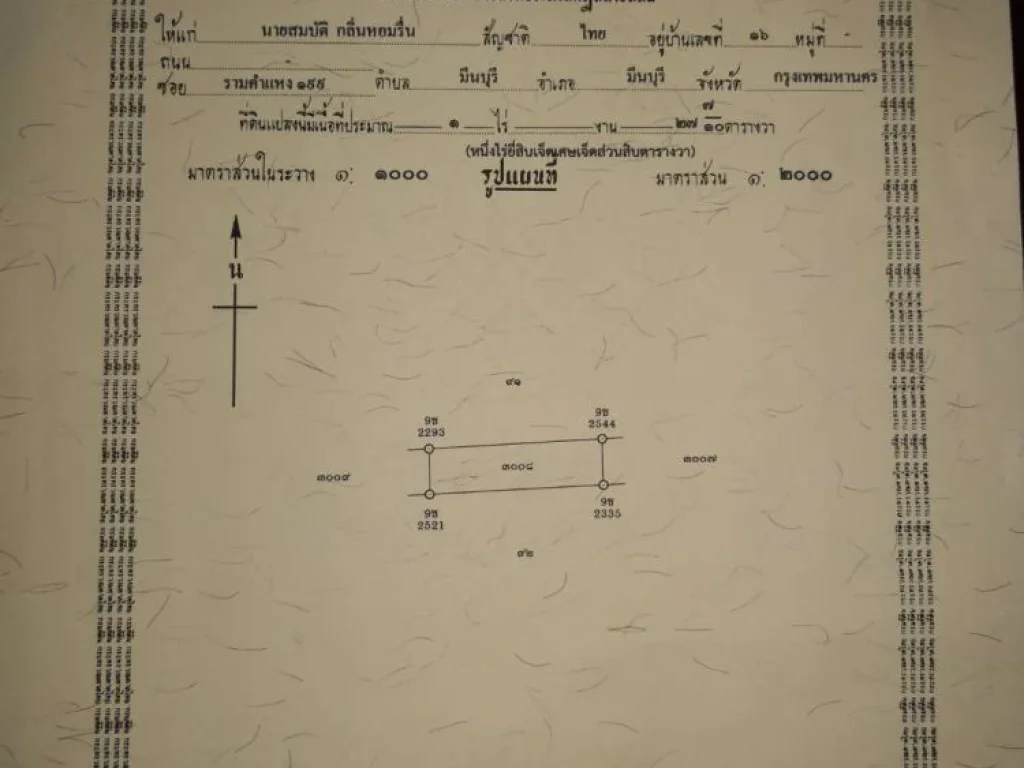 ให้แก่ นายสมบัติ กลิ่นหอมรื่น สัญชาติ ไทย อยู่บ้านเลขที่ ๑๖ หมู่ที่ -
ถนน -
ซอย รามคำแหง ๑๙๙ ตำบล มีนบุรี อำเภอ มีนบุรี จังหวัด กรุงเทพมหานคร
ที่ดินแปลงนี้มีเนื้อที่ประมาณ ๑ ไร่ งาน ๒๗ ๗/๑๐ ตารางวา
(หนึ่งไร่ยี่สิบเจ็ดเศษเจ็ดส่วนสิบตารางวา)
มาตราส่วนในระวาง ๑: ๑๐๐๐ รูปแผนที่ มาตราส่วน ๑: ๒๐๐๐
น
๙๑
9ช
2293
9ช
2544
๓๐๐๙
๓๐๐๘
๓๐๐๗
9ช
2521
9ช
2335
๙๒